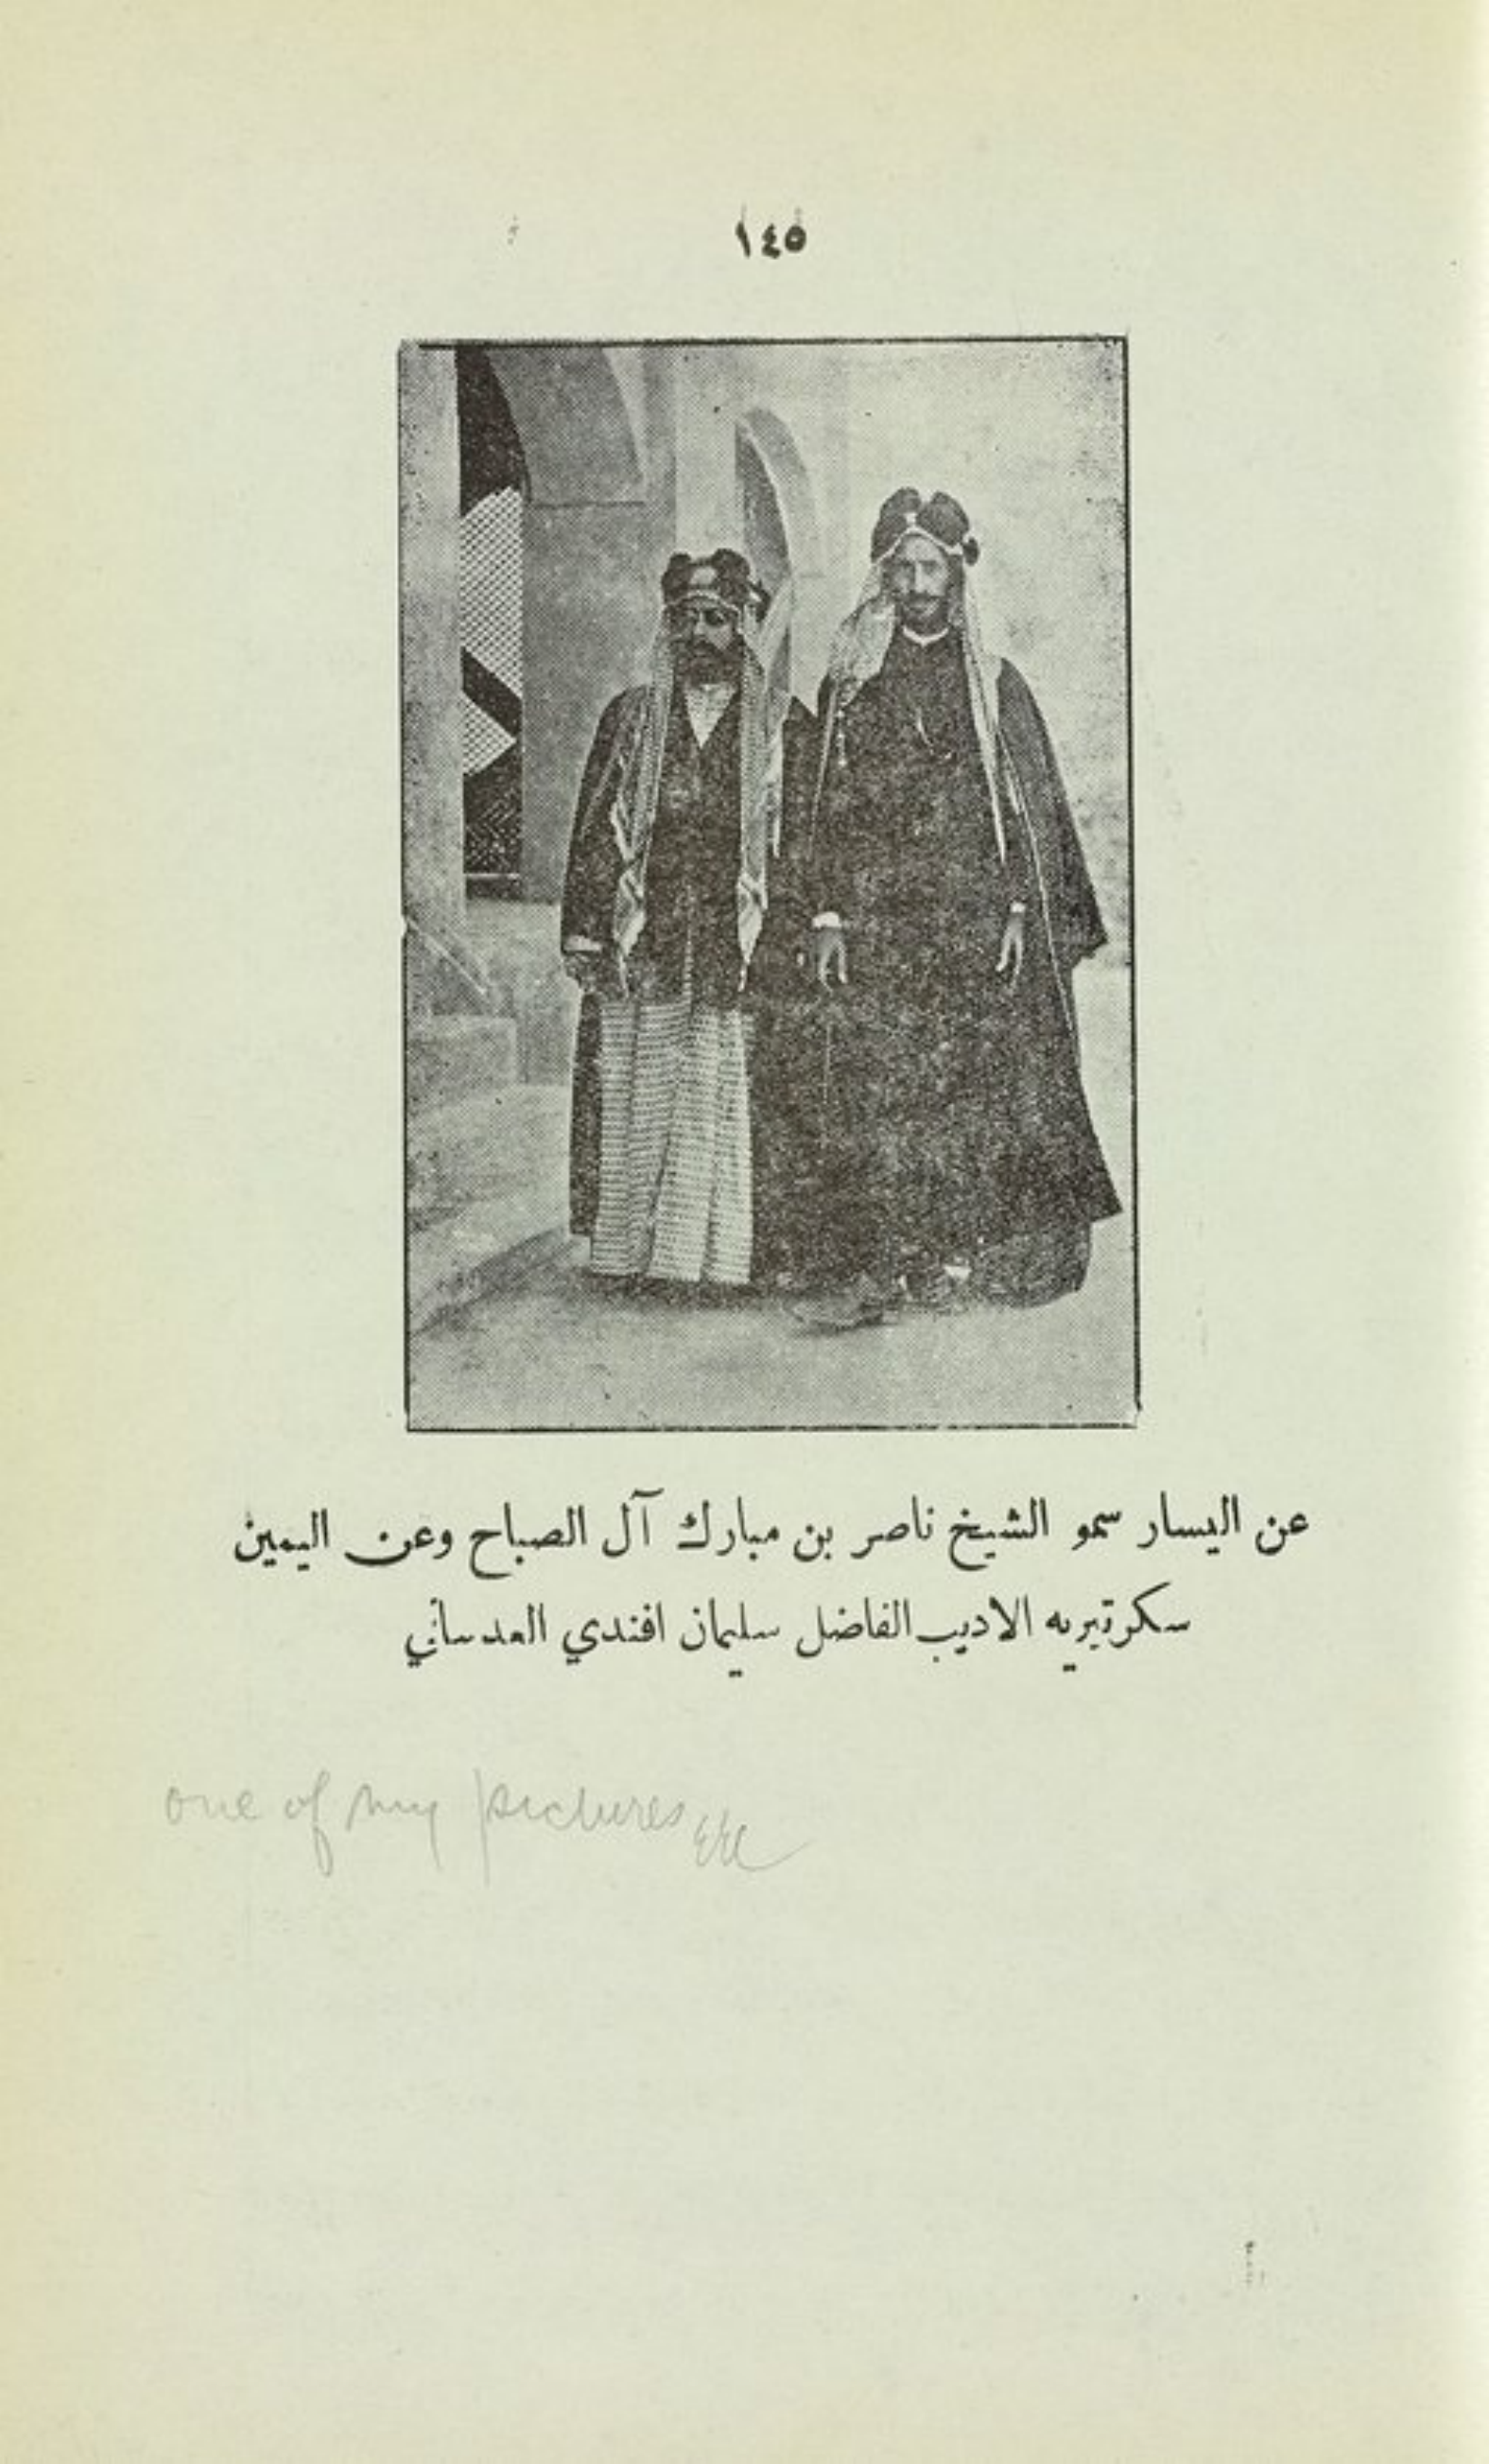 ١٤٥
عن اليسار سمو الشيخ ناصر بن مبارك آل الصباح وعن اليمين
سكرتيريه الاديب الفاضل سليمان افندي العدساني
one of my pictures